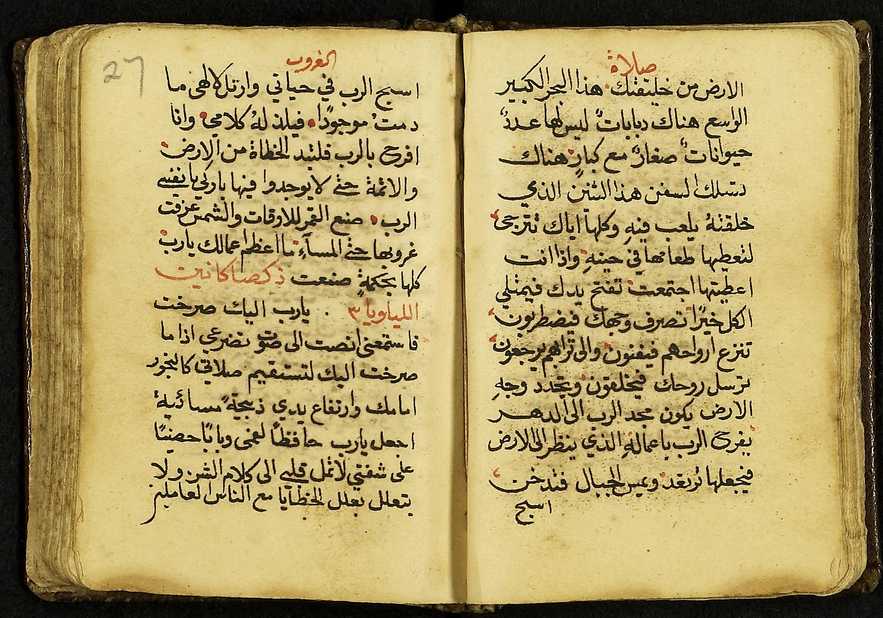 صلاة
الارض من خليقتك هذا البحر الكبير
الواسع هناك دبابات ليس لها عددٌ
حيوانات صغارٌ مع كبارٍ هناك
تسلك السفن هذا التنين الذي
خلقتهُ يلعب فيهِ وكلها اياك تترجى
لتعطيها طعامها في حينهِ واذا انت
اعطيتها اجتمعت تفتح يدك فيمتلي
الكل خيرًا تصرف وجهك فيضطربون
تنزع ارواحهم فيفنون والى ترابهم يرجعون
ترسل روحك فيخلقون ويتجدد وجه
الارض يكون مجد الرب الى الدهر
يفرح الرب باعماله الذي ينظر الى الارض
فيجعلها ترتعد ويمس الجبال فتدخن
اسبح
27
الغروب
اسبح الرب في حياتي وارتل لالهي ما
دمتُ موجودًا فيلذ لهُ كلامي وانا
افرح بالرب فلتبد الخطاة من الارض
والاثمة حتى لا يوجدوا فيها باركي يا نفسي
الرب صنع القمر للاوقات والشمس عرفت
غروبها حتى المسآء ما اعظم اعمالك يارب
كلها بحكمةٍ صنعت ذكصاكانيت
الليلويا ٣ يارب اليك صرخت
فاستمعني انصت الى صوت تضرعي اذا ما
صرخت اليك لتستقيم صلاتي كالبخور
امامك وارتفاع يدي ذبيحةً مسائية
اجعل يارب حافظًا لفمي وبابًا حصينًا
على شفتي لا تمل قلبي الى كلام الشر ولا
يتعلل بعلل الخطايا مع الناس العاملين